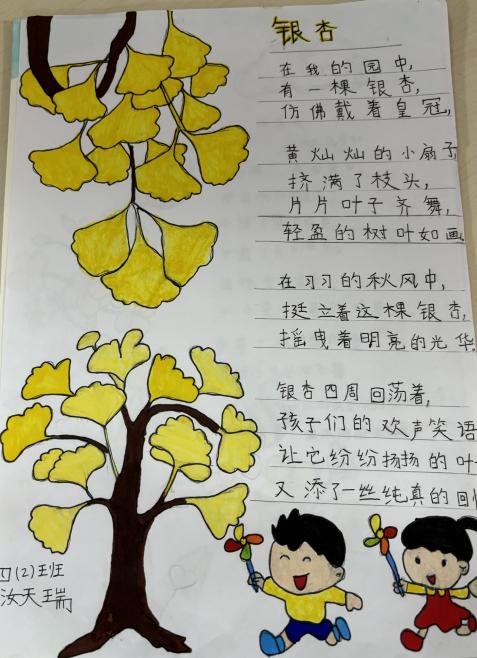 银杏
在我的园中,
有一棵银杏,
仿佛戴着皇冠,
黄灿灿的小扇子
挤满了枝头,
片片叶子齐舞,
轻盈的树叶如画
在习习的秋风中,
挺立着这棵银杏,
摇曳着明亮的光华
银杏四周回荡着,
孩子们的欢声笑语
让它纷纷扬扬的叶
又添了一丝纯真的回
四(2)班
汝天瑞